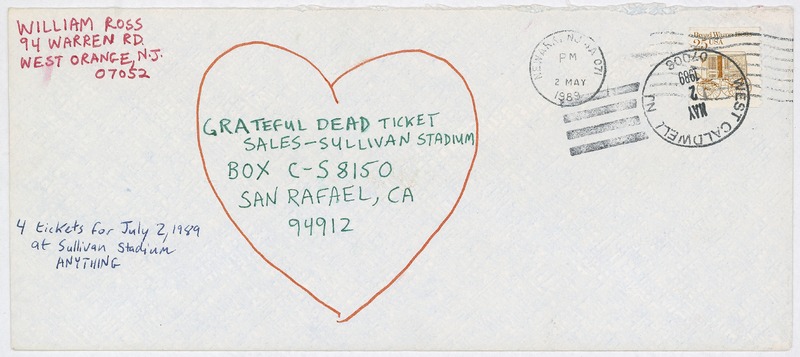 WILLIAM ROSS
94 WARREN RD.
WEST ORANGE, N.J.
07052
NEWARK, NJ
071
PM
2 MAY
1989
Bread Wagon
25 USA
WEST CALDWELL NJ
MAY
2
1989
07006
GRATEFUL DEAD TICKET
SALES-SULLIVAN STADIUM
BOX C-S 8150
SAN RAFAEL, CA
94912
4 tickets for July 2, 1989
at Sullivan Stadium
ANYTHING